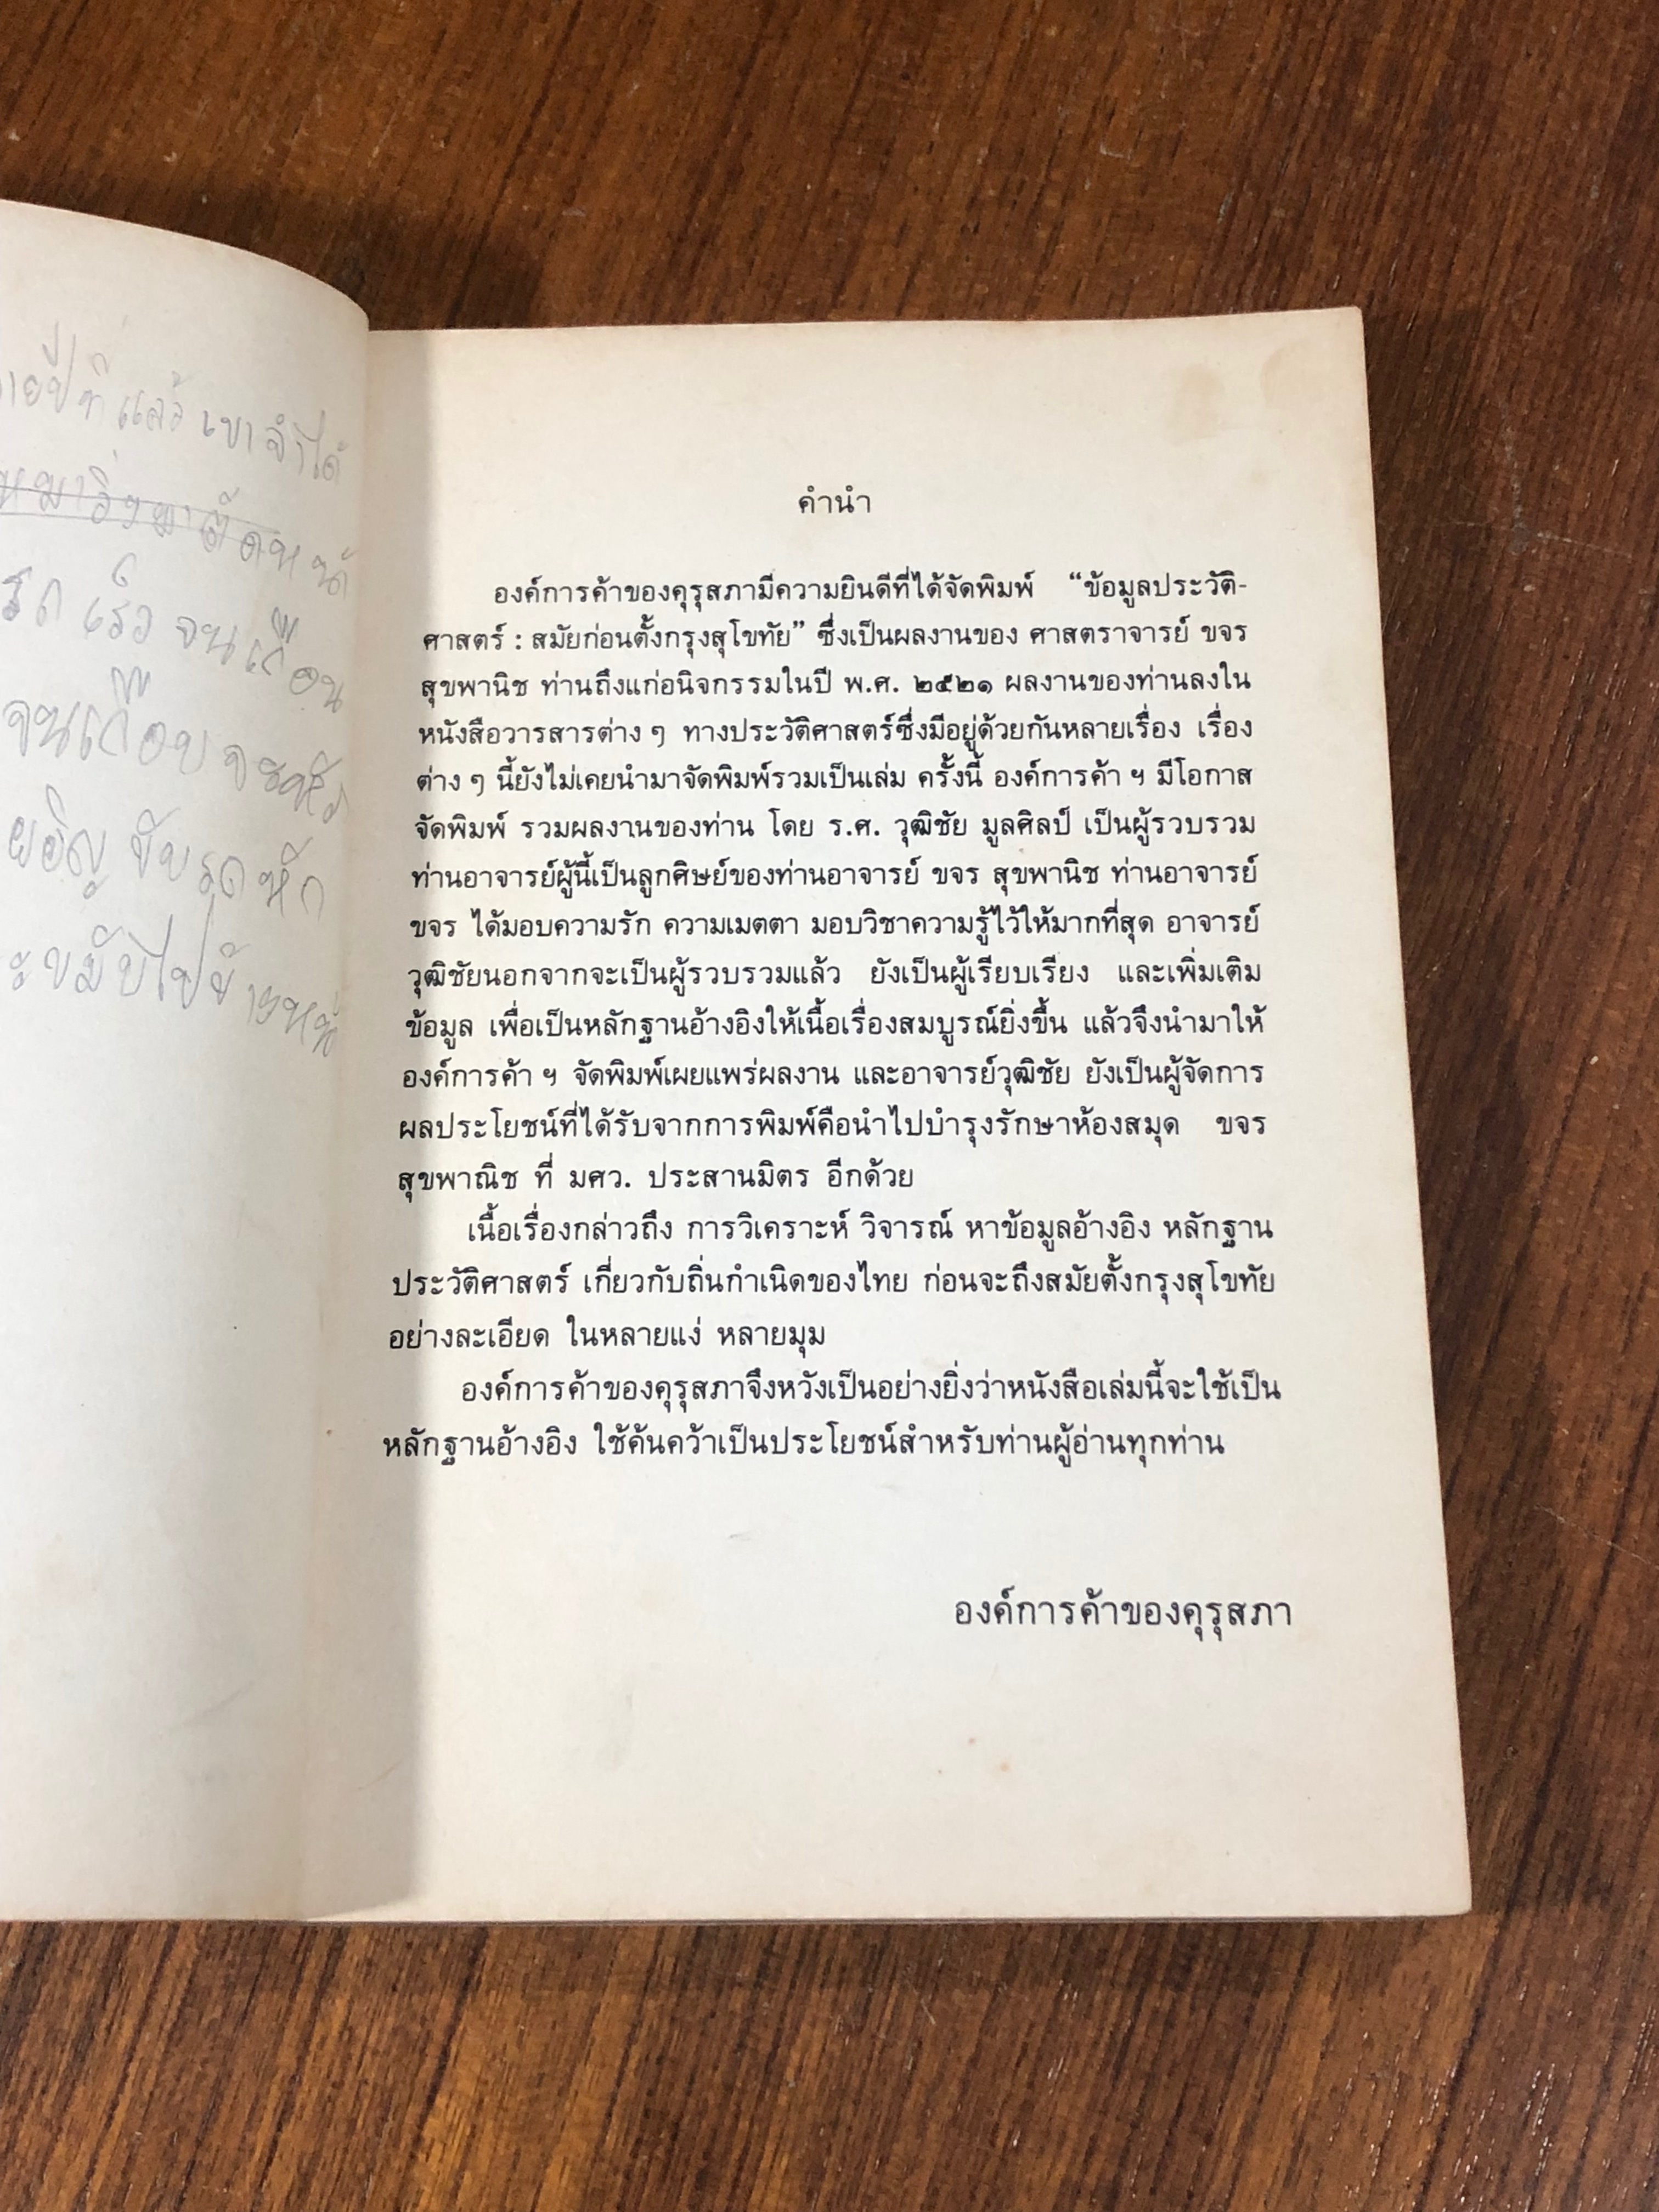 ายปีที่แล้ว เขาจำได้
หมาวิ่งมาตัดหน้
รถเร็วจนเกือบ
จนเกือบจะ
ขับรถหัก
ขยับไป
คำนำ
องค์การค้าของคุรุสภามีความยินดีที่ได้จัดพิมพ์ “ข้อมูลประวัติ-
ศาสตร์ : สมัยก่อนตั้งกรุงสุโขทัย” ซึ่งเป็นผลงานของ ศาสตราจารย์ ขจร
สุขพานิช ท่านถึงแก่อนิจกรรมในปี พ.ศ. ๒๕๒๑ ผลงานของท่านลงใน
หนังสือวารสารต่าง ๆ ทางประวัติศาสตร์ซึ่งมีอยู่ด้วยกันหลายเรื่อง เรื่อง
ต่าง ๆ นี้ยังไม่เคยนำมาจัดพิมพ์รวมเป็นเล่ม ครั้งนี้ องค์การค้า ฯ มีโอกาส
จัดพิมพ์ รวมผลงานของท่าน โดย ร.ศ. วุฒิชัย มูลศิลป์ เป็นผู้รวบรวม
ท่านอาจารย์ผู้นี้เป็นลูกศิษย์ของท่านอาจารย์ ขจร สุขพานิช ท่านอาจารย์
ขจร ได้มอบความรัก ความเมตตา มอบวิชาความรู้ไว้ให้มากที่สุด อาจารย์
วุฒิชัยนอกจากจะเป็นผู้รวบรวมแล้ว ยังเป็นผู้เรียบเรียง และเพิ่มเติม
ข้อมูล เพื่อเป็นหลักฐานอ้างอิงให้เนื้อเรื่องสมบูรณ์ยิ่งขึ้น แล้วจึงนำมาให้
องค์การค้า ฯ จัดพิมพ์เผยแพร่ผลงาน และอาจารย์วุฒิชัย ยังเป็นผู้จัดการ
ผลประโยชน์ที่ได้รับจากการพิมพ์คือนำไปบำรุงรักษาห้องสมุด ขจร
สุขพาณิช ที่ มศว. ประสานมิตร อีกด้วย
เนื้อเรื่องกล่าวถึง การวิเคราะห์ วิจารณ์ หาข้อมูลอ้างอิง หลักฐาน
ประวัติศาสตร์ เกี่ยวกับถิ่นกำเนิดของไทย ก่อนจะถึงสมัยตั้งกรุงสุโขทัย
อย่างละเอียด ในหลายแง่ หลายมุม
องค์การค้าของคุรุสภาจึงหวังเป็นอย่างยิ่งว่าหนังสือเล่มนี้จะใช้เป็น
หลักฐานอ้างอิง ใช้ค้นคว้าเป็นประโยชน์สำหรับท่านผู้อ่านทุกท่าน
องค์การค้าของคุรุสภา